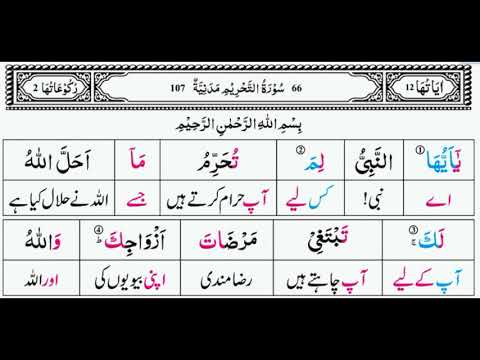 اٰيَاتُهَا 12 66 سُوْرَةُ التَّحْرِيْمِ مَدَنِيَّةٌ 107 رُكُوْعَاتُهَا 2
بِسْمِ اللهِ الرَّحْمٰنِ الرَّحِيْمِ
يٰٓاَيُّهَا ① النَّبِىُّ لِمَ ② تُحَرِّمُ مَآ اَحَلَّ اللهُ
اے نبی! کس لیے آپ حرام کرتے ہیں جسے اللہ نے حلال کیا ہے
لَكَ ③ ۚ تَبْتَغِىْ مَرْضَاتَ اَزْوَاجِكَ ④ ؕ وَاللهُ
آپ کے لیے آپ چاہتے ہیں رضا مندی اپنی بیویوں کی اور اللہ